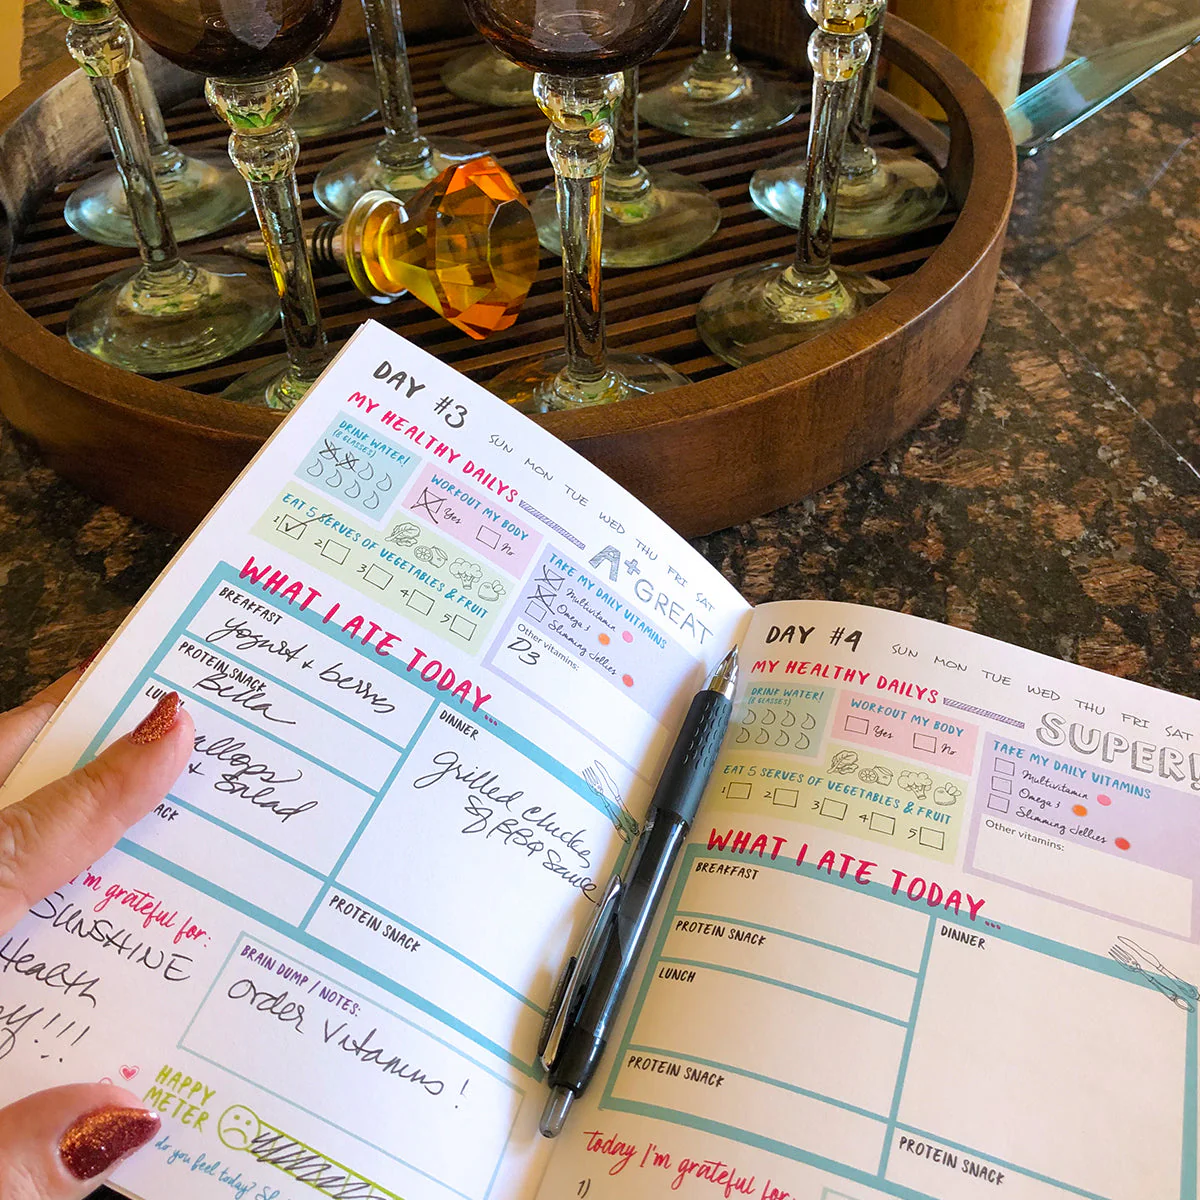 DAY #3
SUN MON TUE WED THU FRI SAT
MY HEALTHY DAILYS
A+ GREAT
DRINK WATER!
(8 GLASSES)
WORKOUT MY BODY
Yes No
EAT 5 SERVES OF VEGETABLES & FRUIT
1 2 3 4 5
TAKE MY DAILY VITAMINS
Multivitamin
Omega 3
Slimming Jellies
Other vitamins:
D3
WHAT I ATE TODAY...
BREAKFAST
yogurt + berries
PROTEIN SNACK
Bella
& Salad
DINNER
Grilled Chicken
SF BBQ Sauce
PROTEIN SNACK
I'm grateful for:
SUNSHINE
Health
BRAIN DUMP / NOTES:
order vitamins!
HAPPY
METER
do you feel today?
DAY #4
SUN MON TUE WED THU FRI SAT
MY HEALTHY DAILYS
SUPER!
DRINK WATER!
(8 GLASSES)
WORKOUT MY BODY
Yes No
EAT 5 SERVES OF VEGETABLES & FRUIT
1 2 3 4 5
TAKE MY DAILY VITAMINS
Multivitamin
Omega 3
Slimming Jellies
Other vitamins:
WHAT I ATE TODAY...
BREAKFAST
PROTEIN SNACK
LUNCH
PROTEIN SNACK
DINNER
PROTEIN SNACK
today I'm grateful for:
1)